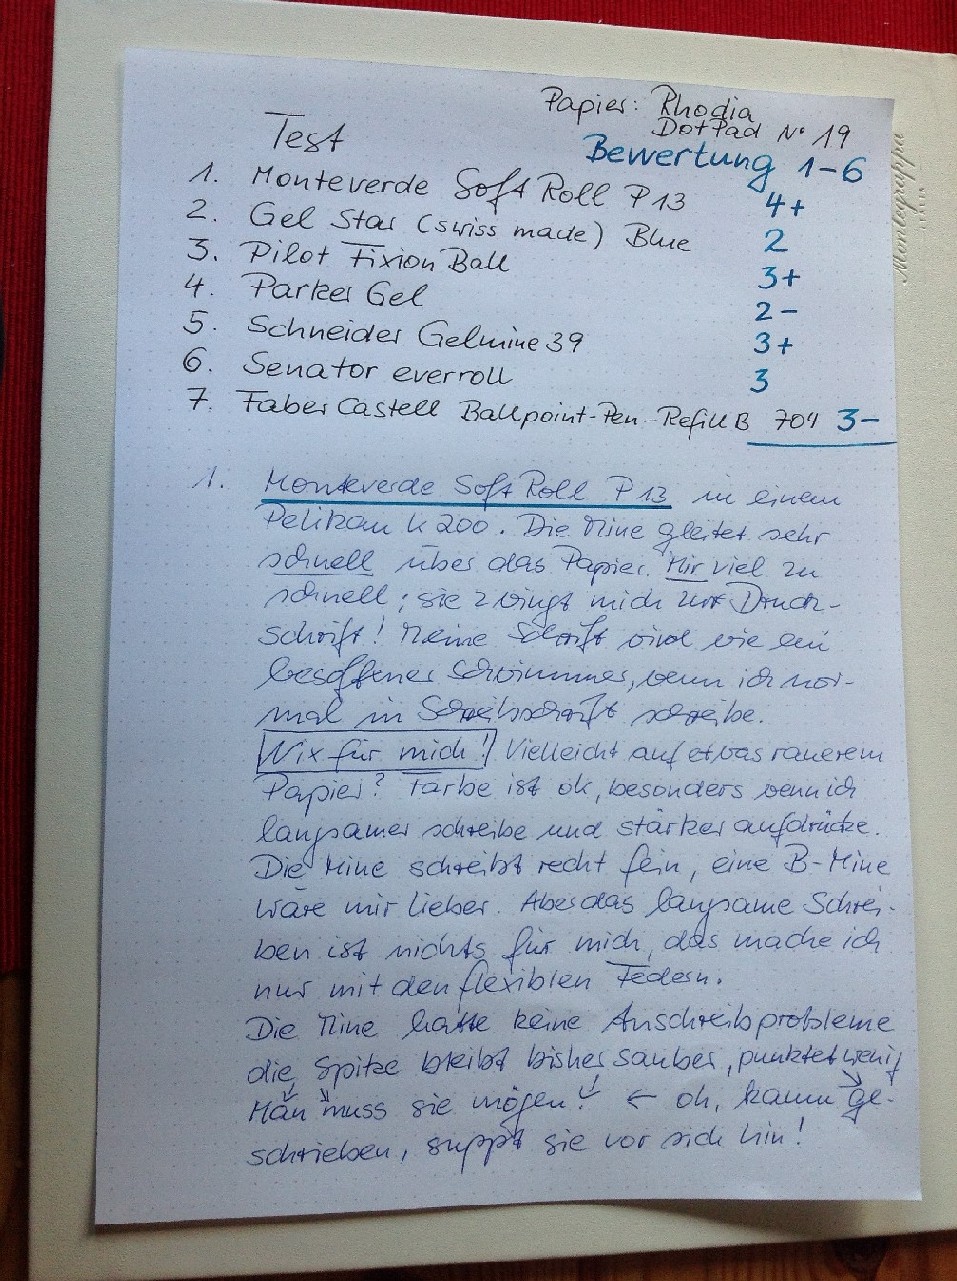 Papier: Rhodia
DotPad N° 19
Test
Bewertung 1-6
1. Monteverde Soft Roll P13 4+
2. Gel Star (swiss made) Blue 2
3. Pilot Fixion Ball 3+
4. Parker Gel 2-
5. Schneider Gelmine 39 3+
6. Senator everroll 3
7. Faber Castell Ballpoint-Pen-Refill B 704 3-
1. Monteverde Soft Roll P13 in einem
Pelikan K200. Die Mine gleitet sehr
schnell über das Papier. Mir viel zu
schnell; sie zwingt mich zur Druck-
schrift! Meine Schrift wird wie ein
besoffener Schwimmer, wenn ich nor-
mal in Schreibschrift schreibe.
Nix für mich! Vielleicht auf etwas rauerem
Papier? Farbe ist ok, besonders wenn ich
langsamer schreibe und stärker aufdrücke.
Die Mine schreibt recht fein, eine B-Mine
wäre mir lieber. Aber das langsame Schrei-
ben ist nichts für mich, das mache ich
nur mit den flexiblen Federn.
Die Mine hatte keine Anschreibprobleme
die Spitze bleibt bisher sauber, punktet wenig
Man muss sie mögen! ← oh, kaum ge-
schrieben, suppt sie vor sich hin!
Montegrappa